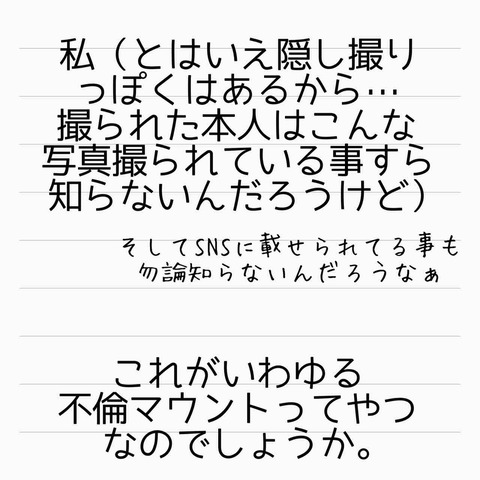 私（とはいえ隠し撮り
っぽくはあるから…
撮られた本人はこんな
写真撮られている事すら
知らないんだろうけど）
そしてSNSに載せられてる事も
勿論知らないんだろうなぁ
これがいわゆる
不倫マウントってやつ
なのでしょうか。